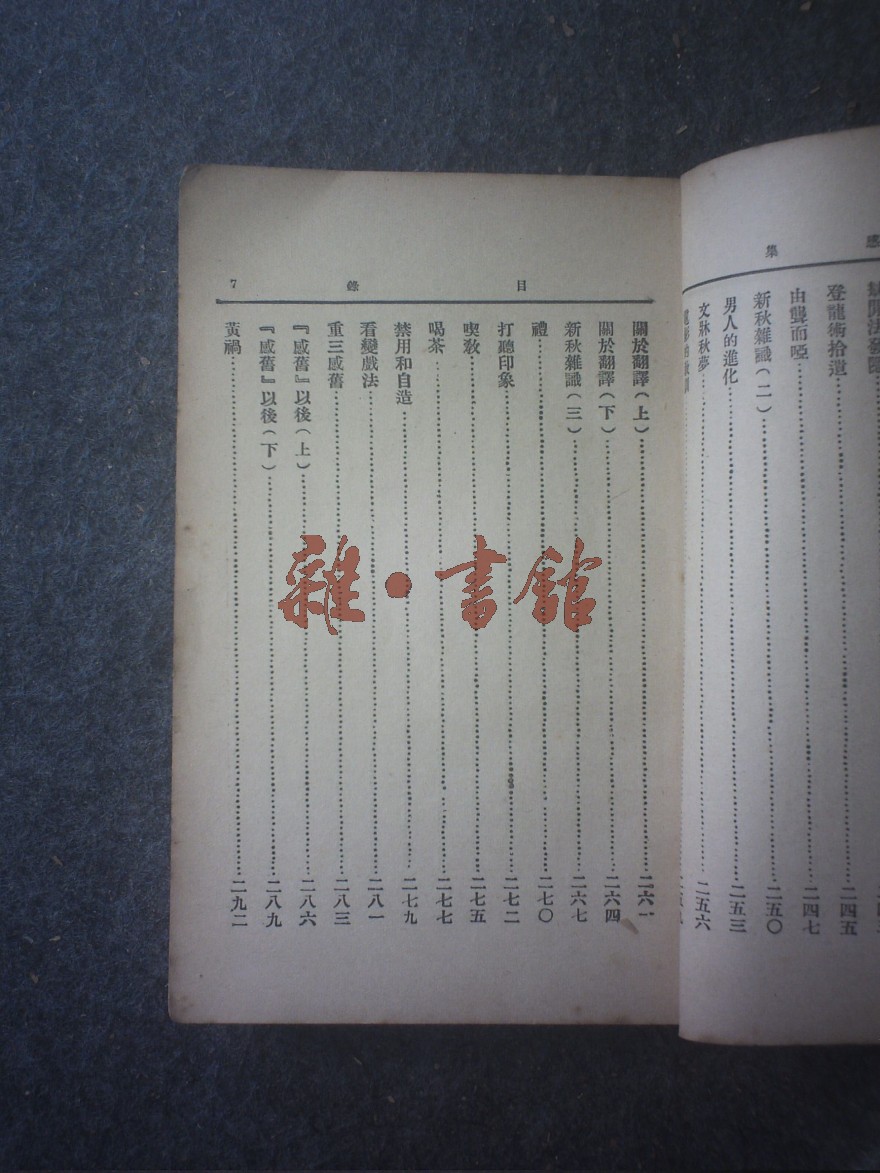 集
登龍術拾遺……二四五
由聾而啞……二四七
新秋雜識(二)……二五〇
男人的進化……二五三
文牀秋夢……二五六
目錄 7
關於翻譯(上)……二六一
關於翻譯(下)……二六四
新秋雜識(三)……二六七
禮……二七〇
打聽印象……二七二
喫敎……二七五
喝茶……二七七
禁用和自造……二七九
看變戲法……二八一
重三感舊……二八三
『感舊』以後(上)……二八六
『感舊』以後(下)……二八九
黃禍……二九二
雜·書館